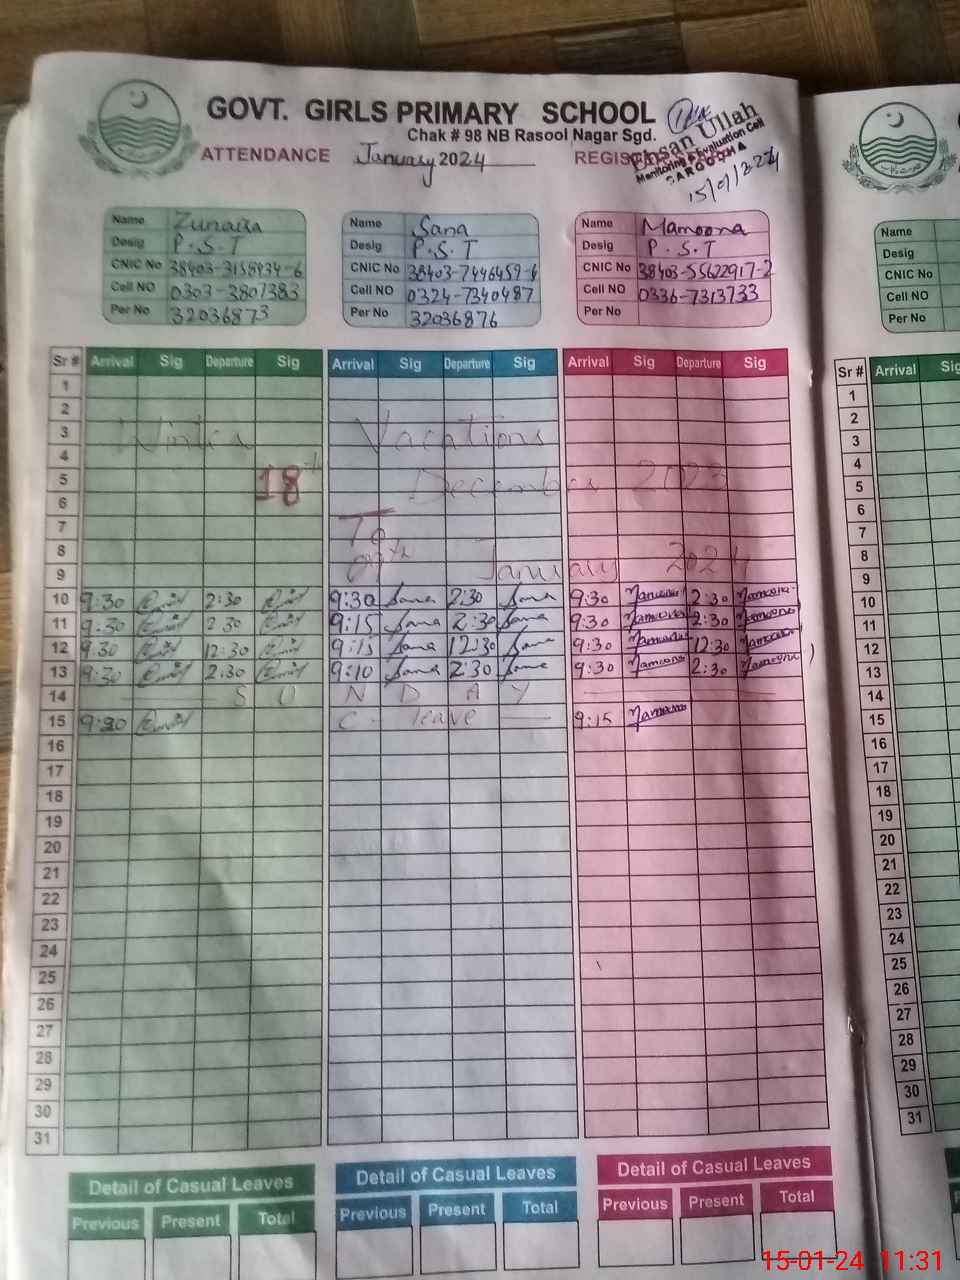 GOVT. GIRLS PRIMARY SCHOOL
Chak # 98 NB Rasool Nagar Sgd.
ATTENDANCE January 2024 REGISTER
Ehsan Ullah
Monitoring & Evaluation Cell
SARGODHA
15/01/2024
Name Zunaira Name Sana Name Mamoona Name
Desig P.S.T Desig P.S.T Desig P.S.T Desig
CNIC No 38403-3158934-6 CNIC No 38403-7446459-6 CNIC No 38403-55622917-2 CNIC No
Cell NO 0303-3801383 Cell NO 0324-7340487 Cell NO 0336-7313733 Cell NO
Per No 32036873 Per No 32036876 Per No Per No
Sr # Arrival Sig Departure Sig Arrival Sig Departure Sig Arrival Sig Departure Sig Sr # Arrival Sig
1 1
2 2
3 Winter Vacations 3
4 4
5 18th December 2023 5
6 6
7 To 7
8 8
9 09th January 2024 9
10 9:30 2:30 9:30 Sana 2:30 Sana 9:30 Mamoona 2:30 Mamoona 10
11 9:30 2:30 9:15 Sana 2:30 Sana 9:30 Mamoona 2:30 Mamoona 11
12 9:30 12:30 9:15 Sana 12:30 Sana 9:30 Mamoona 12:30 Mamoona 12
13 9:30 2:30 9:10 Sana 2:30 Sana 9:30 Mamoona 2:30 Mamoona 13
14 S U N D A Y 14
15 9:20 C - leave 9:15 Mamoona 15
16 16
17 17
18 18
19 19
20 20
21 21
22 22
23 23
24 24
25 25
26 26
27 27
28 28
29 29
30 30
31 31
Detail of Casual Leaves Detail of Casual Leaves Detail of Casual Leaves
Previous Present Total Previous Present Total Previous Present Total
15-01-24 11:31